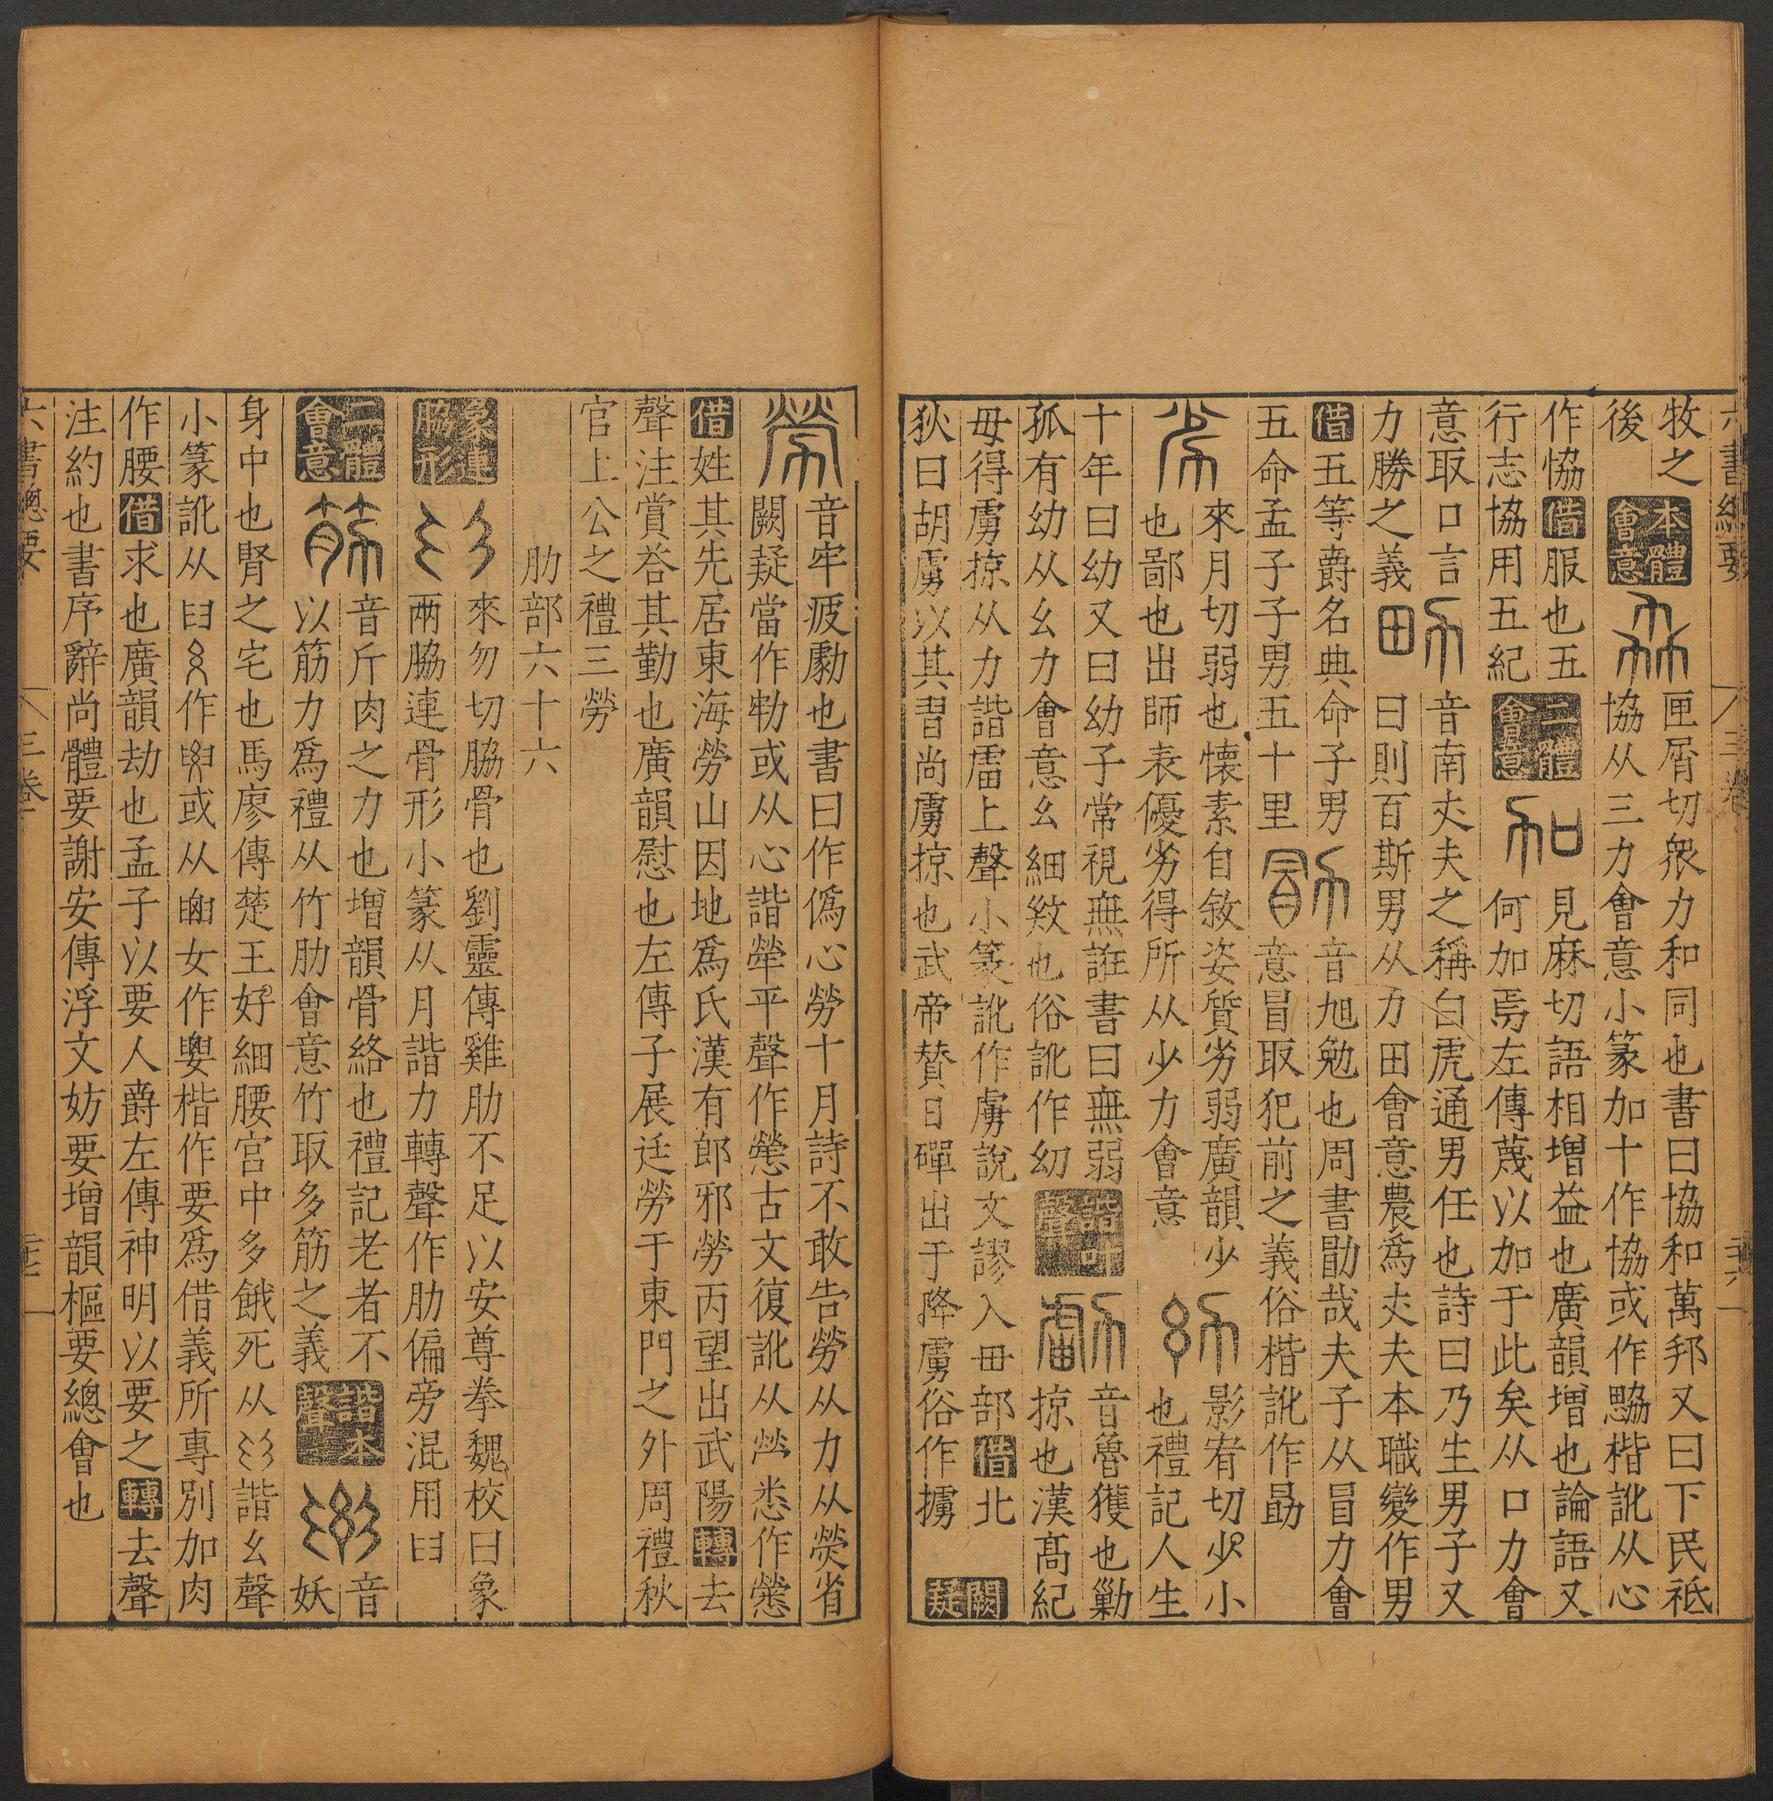 六書總要 三卷 二十六
牧之
後
本體會意
匣屑切衆力和同也書曰協和萬邦又曰下民祗
協从三力會意小篆加十作協或作勰楷訛从心
作恊借服也五
行志協用五紀
二體會意
見麻切語相增益也廣韻增也論語又
何加焉左傳蔑以加于此矣从口力會
意取口言
力勝之義
音南𠀋夫之稱白虎通男任也詩曰乃生男子又
曰則百斯男从力田會意農爲𠀋夫本職變作男
借五等爵名典命子男
五命孟子子男五十里
音旭勉也周書勖哉夫子从冒力會
意冒取犯前之義俗楷訛作勗
來月切弱也懷素自敘姿質劣弱廣韻少
也鄙也出師表優劣得所从少力會意
影宥切少小
也禮記人生
十年曰幼又曰幼子常視無誑書曰無弱
孤有幼从幺力會意幺細紋也俗訛作㓜
諧叶聲
音魯獲也勦
掠也漢髙紀
毋得虜掠从力諧䨓上聲小篆訛作虜說文謬入毌部借北
狄曰胡虜以其習尚虜掠也武帝贊日磾出于降虜俗作擄
闕疑
音牢疲勮也書曰作僞心勞十月詩不敢告勞从力从熒省
闕疑當作勑或从心諧犖平聲作憥古文復訛从𤇾悉作憥
借姓其先居東海勞山因地爲氏漢有郎邪勞丙望出武陽轉去
聲注賞荅其勤也廣韻慰也左傳子展廷勞于東門之外周禮秋
官上公之禮三勞
肋部六十六
象連脇形
來勿切脇骨也劉靈傳雞肋不足以安尊拳魏校曰象
兩脇連骨形小篆从月諧力轉聲作肋偏旁混用𦥑
二體會意
音斤肉之力也增韻骨絡也禮記老者不
以筋力爲禮从竹肋會意竹取多筋之義
諧本聲
音
妖
身中也腎之宅也馬廖傳楚王好細腰宮中多餓死从諧幺聲
小篆訛从𦥑作或从女作楷作要爲借義所專別加肉
作腰借求也廣韻劫也孟子以要人爵左傳神明以要之轉去聲
注約也書序辭尚體要謝安傳浮文妨要增韻樞要總會也
六書總要 三卷 二十七